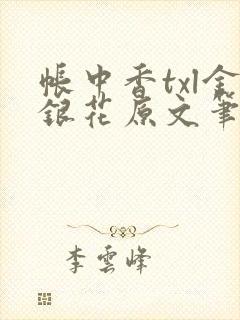 帳中香txl金
銀花原文筆
李雲峰